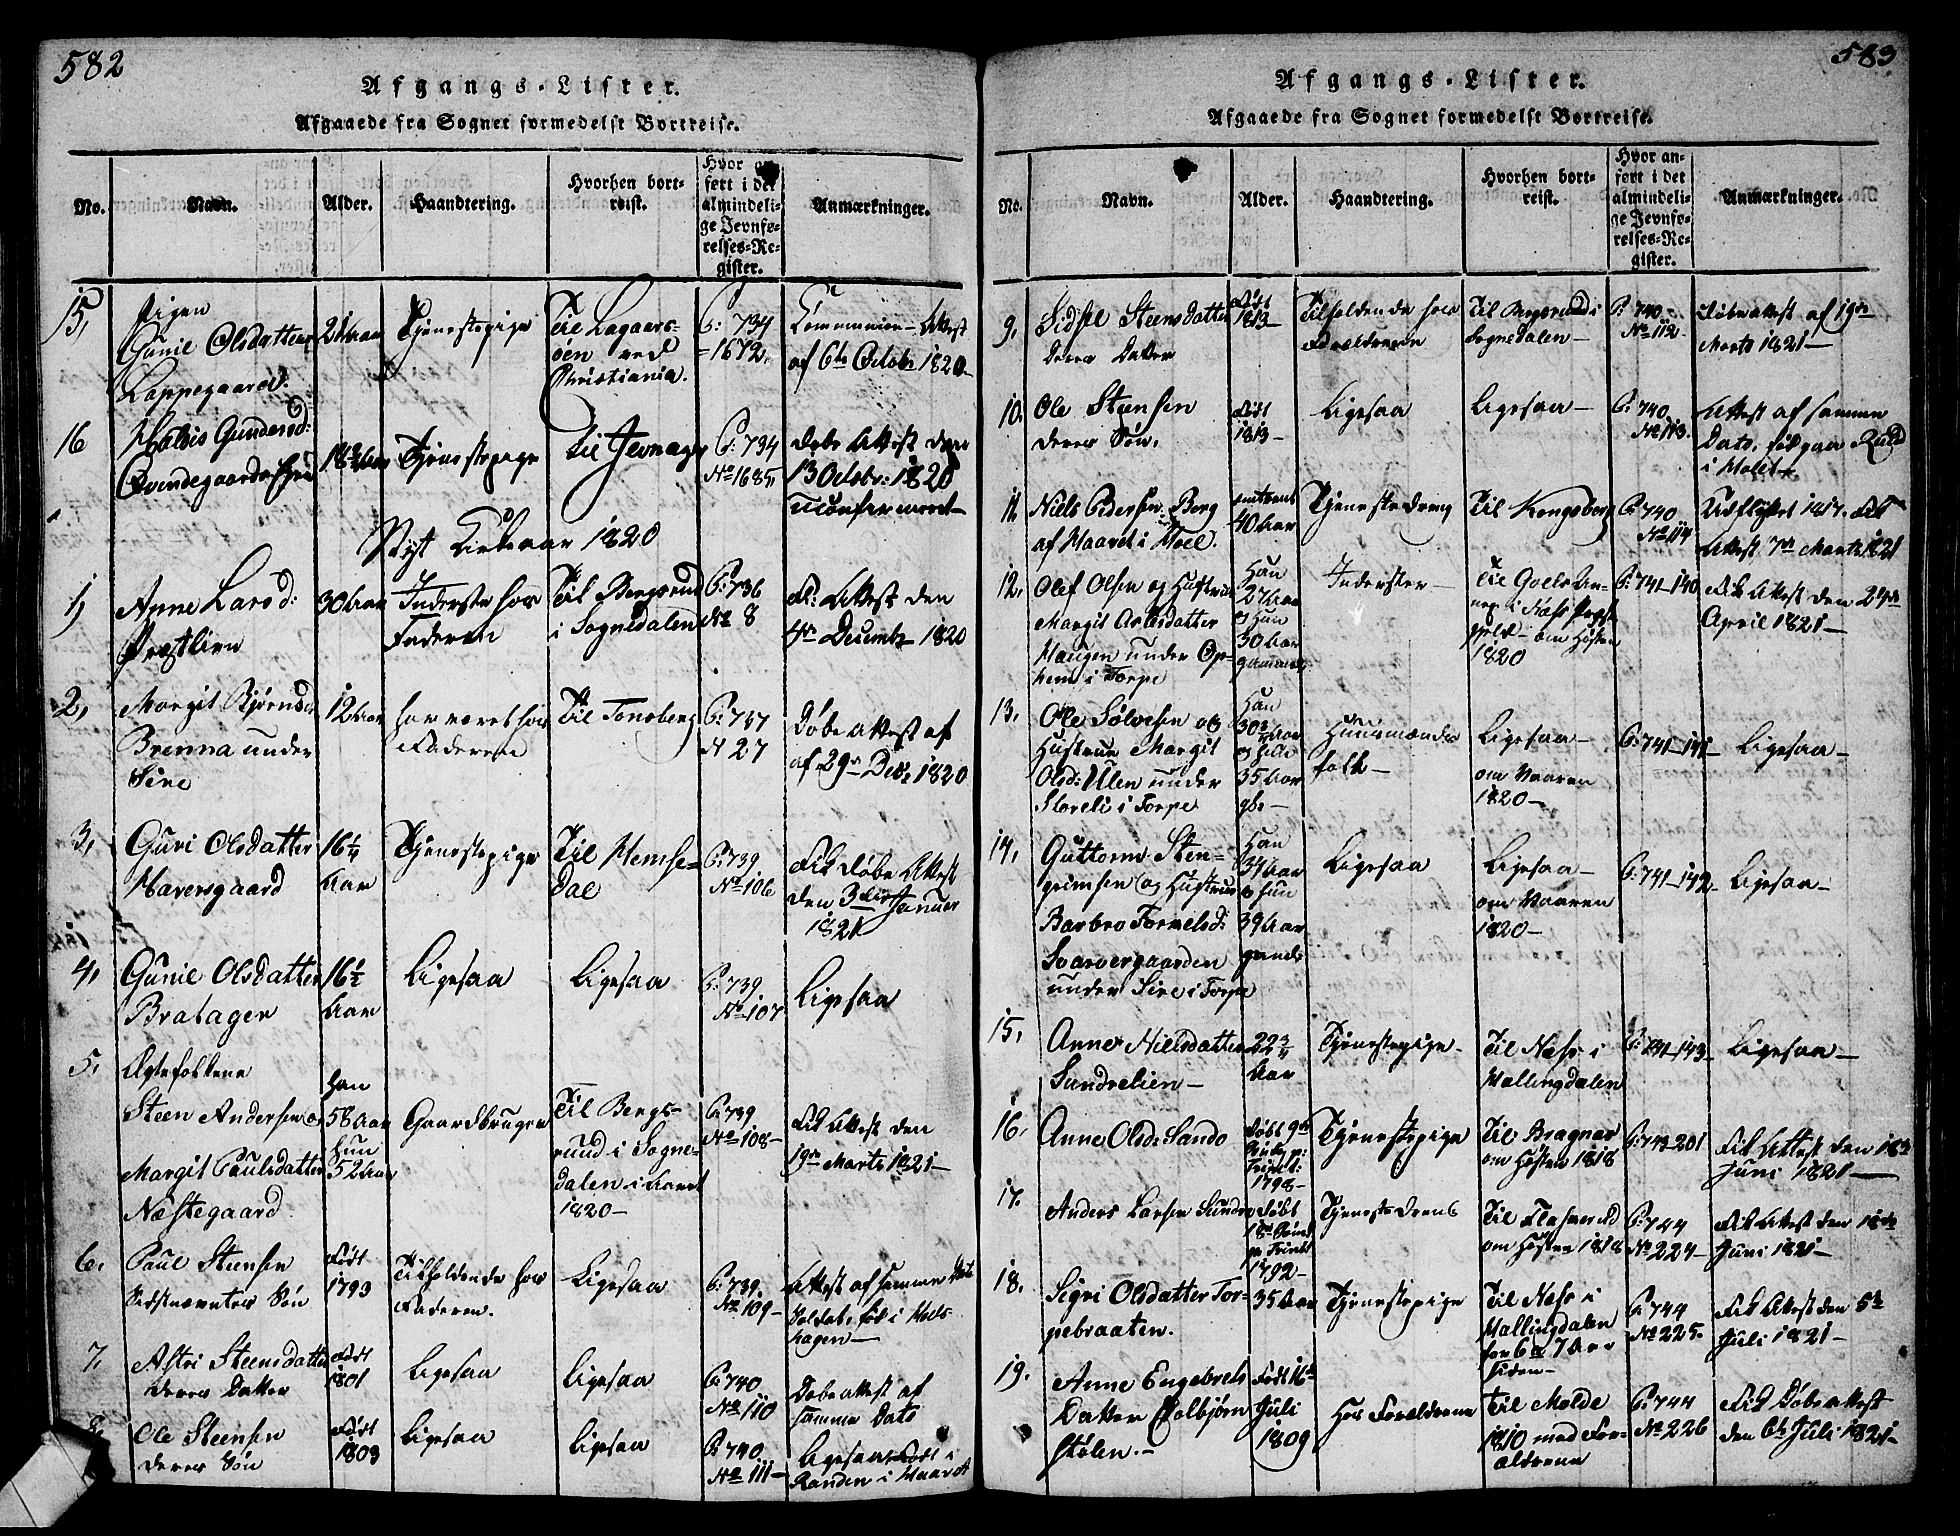 582
Afgangs-Lister.
Afgaaede fra Sognet formedelst Bortreise.
No.
Navn.
Alder.
Haandtering.
Hvorhen bort-
reist.
Hvor an-
ført i det
almindeli-
ge Jevnfø-
relses-Re-
gister.
Anmærkninger.
15,
Pigen
Gunil Olsdatter
Loppegaard.
21 Aar
Tjenestepige
Til Lagaars-
øen ved
Christiania.
P: 734
1672.
Communion-Attest
af 6te Octobr 1820
16
Gunders d:
18 3/4 Aar
Tjenestepige
til Jevnager
P: 734
No 1685,
Døbe Attest den
13 Octobr: 1820
Nyt Kirkeaar 1820
1,
Anne Larsd:
Præstlien
30 Aar
Inderste hos
Faderen
Til Bergsrud
i Sognedalen
P: 736
No 8
Fik Attest den
4de Decembr 1820
2,
Margit Bjørnsd:
Brenna under
Sire
12 Aar
har været hos
Faderen
Til Tonsberg
P: 737
N 27
Døbeattest af
29de Decbr 1820
3,
Guri Olsdatter
Haversgaard
16 1/4
Aar
Tjenestepige
Til Hemse-
dal
P: 739
No 106
Fik Døbe Attest
den 3die Januar
1821
4,
Gunil Olsdatter
Bratager
16 1/2
Aar
Ligesaa
Ligesaa
P: 739
No 107
Ligesaa
5,
Ægtefolkene
Steen Andersen og
Margit Paulsdatter
Næstegaard
Han
58 Aar
Hun
52 Aar
Gaardbruger
Til Bergs-
rund i Sogne-
dalen i Aaret
1820-
P: 739
No 108-
Fik Attest den
19de Marts 1821-
6,
Paul Steensen
Sidstnævntes Søn
Født
1793
Tilholdende hos
Faderen.
Ligesaa
P: 739.
No 109-
Attest af samme Dato
7,
Astri Steensdatter
deres Datter
Født
1801
Ligesaa
Ligesaa
P: 740
No 110
Døbeattest af
samme Dato
8,
Ole Steensen
deres Søn
Født
1803
Ligesaa
Ligesaa
P: 740
No 111-
Ligesaa
583
Afgangs-Lister.
Afgaaede fra Sognet formedelst Bortreise.
No.
Navn.
Alder.
Haandtering.
Hvorhen bort-
reist.
Hvor an-
ført i det
almindeli-
ge Jevnfø-
relses-Re-
gister.
Anmærkninger.
9,
Sidsel Steensdatter
deres Datter
Født
1813-
Tilholdende hos
Forældrene
Til Bergsrud i
Sognedalen-
P: 740-
No 112-
Døbeattest af 19de
Marts 1821-
10.
Ole Steensen
deres Søn.
Født
1813-
Ligesaa
Ligesaa-
P: 740
No 113.
Attest af samme
Dato
11.
Niels Pedersen Berg
omtrent
40 Aar
Tjenestedreng
Til Kongsberg
P: 740
No 114
Udflyttet 1817. Fik
Attest 7de Marts 1821
12.
Olef Olsen og Hustrue
Margit Asledatter
Haugen under Op-
hem i Torpe
Han
27 Aar
og Hun
30 Aar
Inderster-
om Høsten
1820
P: 741-140
Fik Attest den 24de
April 1821-
13.
Ole Sølvesen og
Hustrue Margit
Olsd: Ulen under
Storeli i Torpe
Han
30 3/4 Aar
35 Aar
Huusmands
folk-
Ligesaa-
om Vaaren
1820-
P: 741-141-
Ligesaa-
14.
Guttorm Sten-
grimsen og Hustrue
Barbro Tormelsd:
Svarvergaarden
under Sire i Torpe
Han
34 Aar
Hun
39 Aar
Ligesaa
Ligesaa-
om Vaaren
1820-
P: 741-142-
Ligesaa-
15.
Anne Nielsdatter
Sundrelien-
22 3/4
Aar
Tjenestepige-
Til Næss i
Hallingdalen
P: 741-143-
Ligesaa-
16.
Anne Olsd: Sando
Født 9de
1798-
Tjenestepige
Til Bragnæs
om Høsten 1818
P: 743-201
Fik Attest den 18de
Juni 1821-
17.
Anders Larsen Sundre
Født
1792-
Tjenestedreng
om Høsten 1818
P: 744
No 224-
Fik Attest den 18de
Juni 1821-
18.
Sigri Olsdatter Tor-
pebraaten.
35 Aar
Tjenestepige
Til Næss i
Hallingdalen
for 6 a 7 Aar
siden-
P: 744
No 225.
Fik Attest den 5te
Juli 1821-
19.
Anne Engebrets
Datter Kolbjørn
stølen.-
Født 16de
Juli
1809
Hos Forældrene
Til Molde
1810 med For-
ældrene
P: 744
No 226
Fik Døbeattest
den 6te Juli 1821-